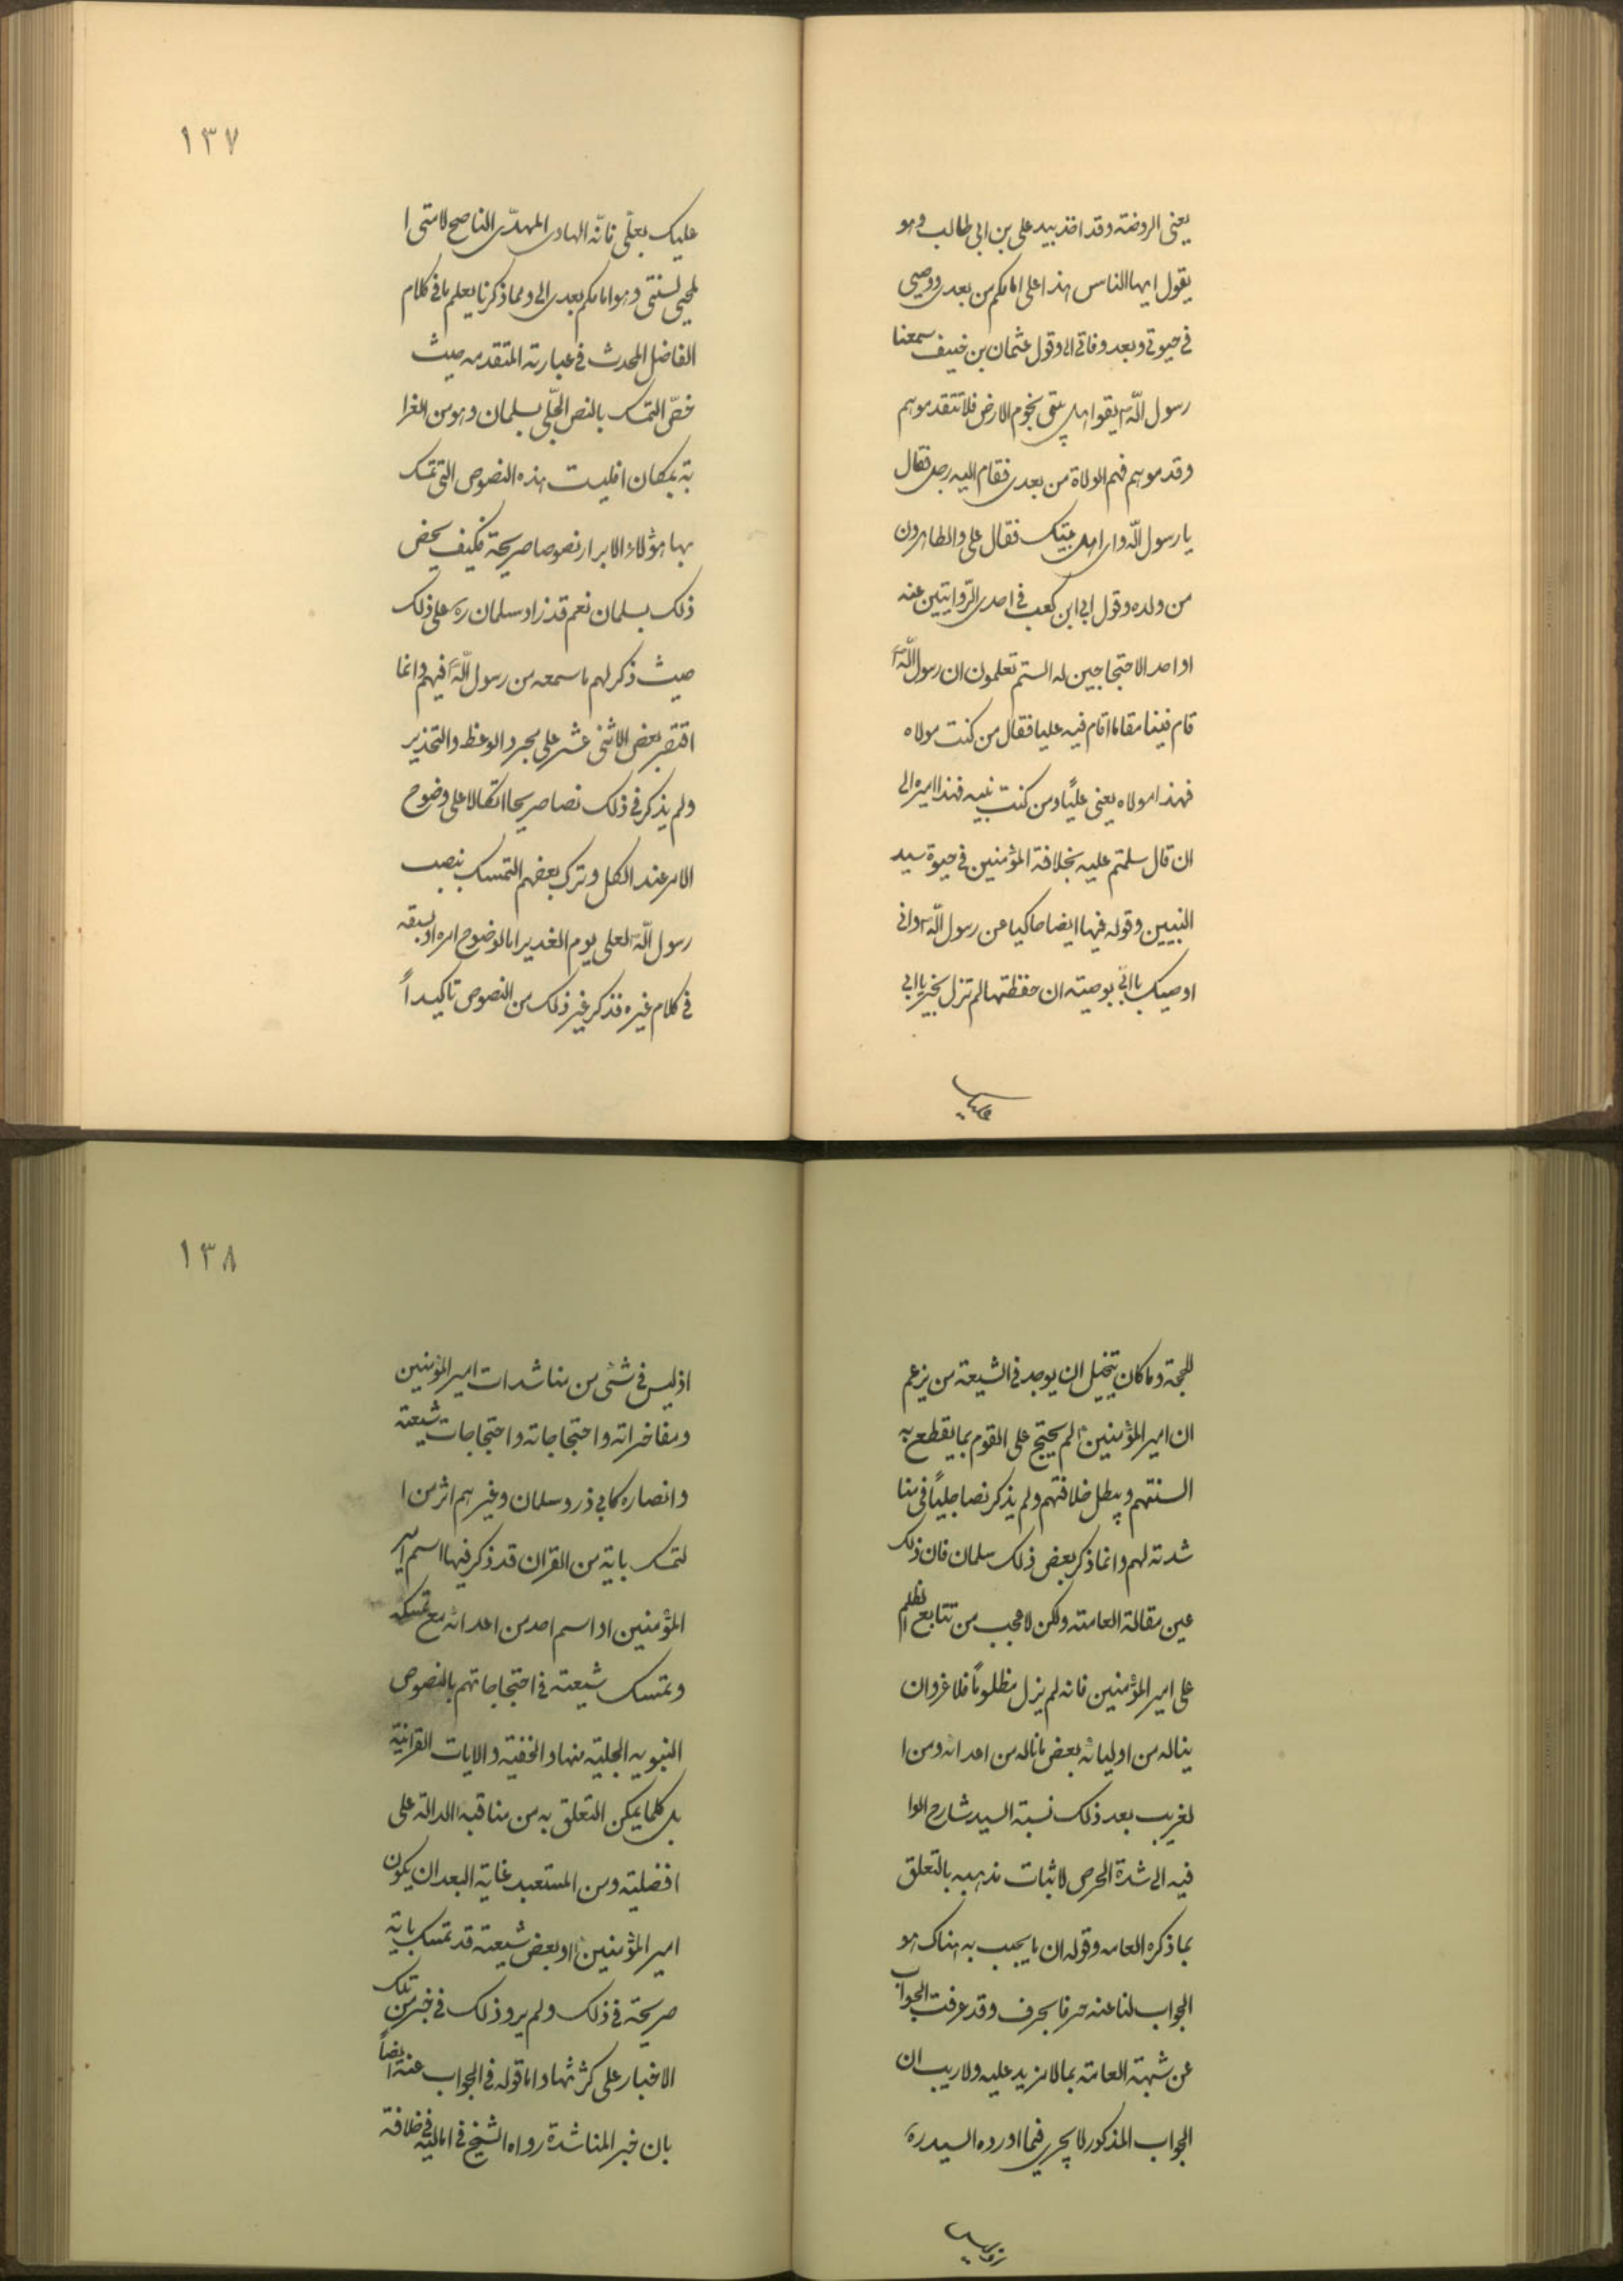 يعنى الروضة وقد اخذ بيد على بن ابى طالب وهو
يقول ايها الناس هذا على امامكم من بعدى ووصيى
فى حيوتى وبعد وفاتى الى وقول عثمان بن حنيف سمعنا
رسول اللّه ص يقول اهل بيتى نجوم الارض فلا تتقدموهم
وقدموهم فهم الولاة من بعدى فقام اليه رجل فقال
يا رسول اللّه واى اهل بيتك فقال على والطاهرون
من ولده وقول ابى ابن كعب فى احدى الرّوايتين عنه
او احد الاحتجاجين له الستم تعلمون ان رسول اللّه ص
قام فينا مقاما اقام فيه عليا فقال من كنت مولاه
فهذا مولاه يعنى عليًا ومن كنت نبيه فهذا اميره الى
ان قال سلمتم عليه بخلافة المؤمنين فى حيوة سيد
النبيين وقوله فيها ايضا حاكيا عن رسول اللّه ص وانى
اوصيك يا ابىّ بوصية ان حفظتها لم تزل بخير يا ابى
عليك
١٣٧
عليك بعلّى فانّه الهادى المهدّى الناصح لامتى ا
لمحيى لسنتى وهو امامكم بعدى الى ومما ذكرنا يعلم ما فى كلام
الفاضل المحدث فى عبارته المتقدمه حيث
خصّ التمسك بالنص الجّلى بسلمان وهو من الغرا
بة بمكان افليست هذه النصوص التى تمسك
بها هؤلاء الابرار نصوصا صريحة فكيف يخص
ذلك بسلمان نعم قد زاد سلمان ره على ذلك
حيث ذكر لهم ما سمعه من رسول اللّه ص فيهم وانما
اقتصر بعض الاثنى عشر على مجرد الوعظ والتحذير
ولم يذكر فى ذلك نصا صريحا اتكالا على وضوح
الامر عند الكل وترك بعضهم التمسك بنصب
رسول اللّه ص لعلى يوم الغدير اما لوضوح امره او لسبقه
فى كلام غيره فذكر غير ذلك من النصوص تاكيداً
للحجة وما كان يتخيل ان يوجد فى الشيعة من يزعم
ان امير المؤمنين ع لم يحتج على القوم بما يقطع به
السنتهم ويبطل خلافتهم ولم يذكر نصا جليًا فى منا
شدته لهم وانما ذكر بعض ذلك سلمان فان ذلك
عين مقالة العامة ولكن لا عجب من تتابع الظلم
على امير المؤمنين فانه لم يزل مظلوماً فلا غرو ان
يناله من اوليائه بعض ما ناله من اعدائه ومن ا
لغريب بعد ذلك نسبة السيد شارح الوا
فيه الى شدة الحرص لاثبات مذهبه بالتعلق
بما ذكره العامه وقوله ان ما يجيب به هناك هو
الجواب لنا عنه حرفا بحرف وقد عرفت الجواب
عن شبهة العامة بما لا مزيد عليه ولا ريب ان
الجواب المذكور لا يجرى فيما اورده السيد ره
١٣٨
اذ ليس فى شئى من مناشدات امير المؤمنين
ومفاخراته واحتجاجاته واحتجاجات شيعته
وانصاره كابى ذر وسلمان وغيرهم اثر من ا
لتمسك باية من القران قد ذكر فيها اسم امير
المؤمنين او اسم احد من اعدائه مع تمسكه
وتمسك شيعته فى احتجاجاتهم بالنصوص
النبويه الجلية منها والخفية والايات القرانية
بل كلما يمكن التعلق به من مناقبه الدالة على
افضليته ومن المستبعد غاية البعد ان يكون
امير المؤمنين ع او بعض شيعته قد تمسك باية
صريحة فى ذلك ولم يرو ذلك فى خبر من تلك
الاخبار على كثرتها واما قوله فى الجواب عنه ايضاً
بان خبر المناشدة رواه الشيخ فى اماليه فى خلافة